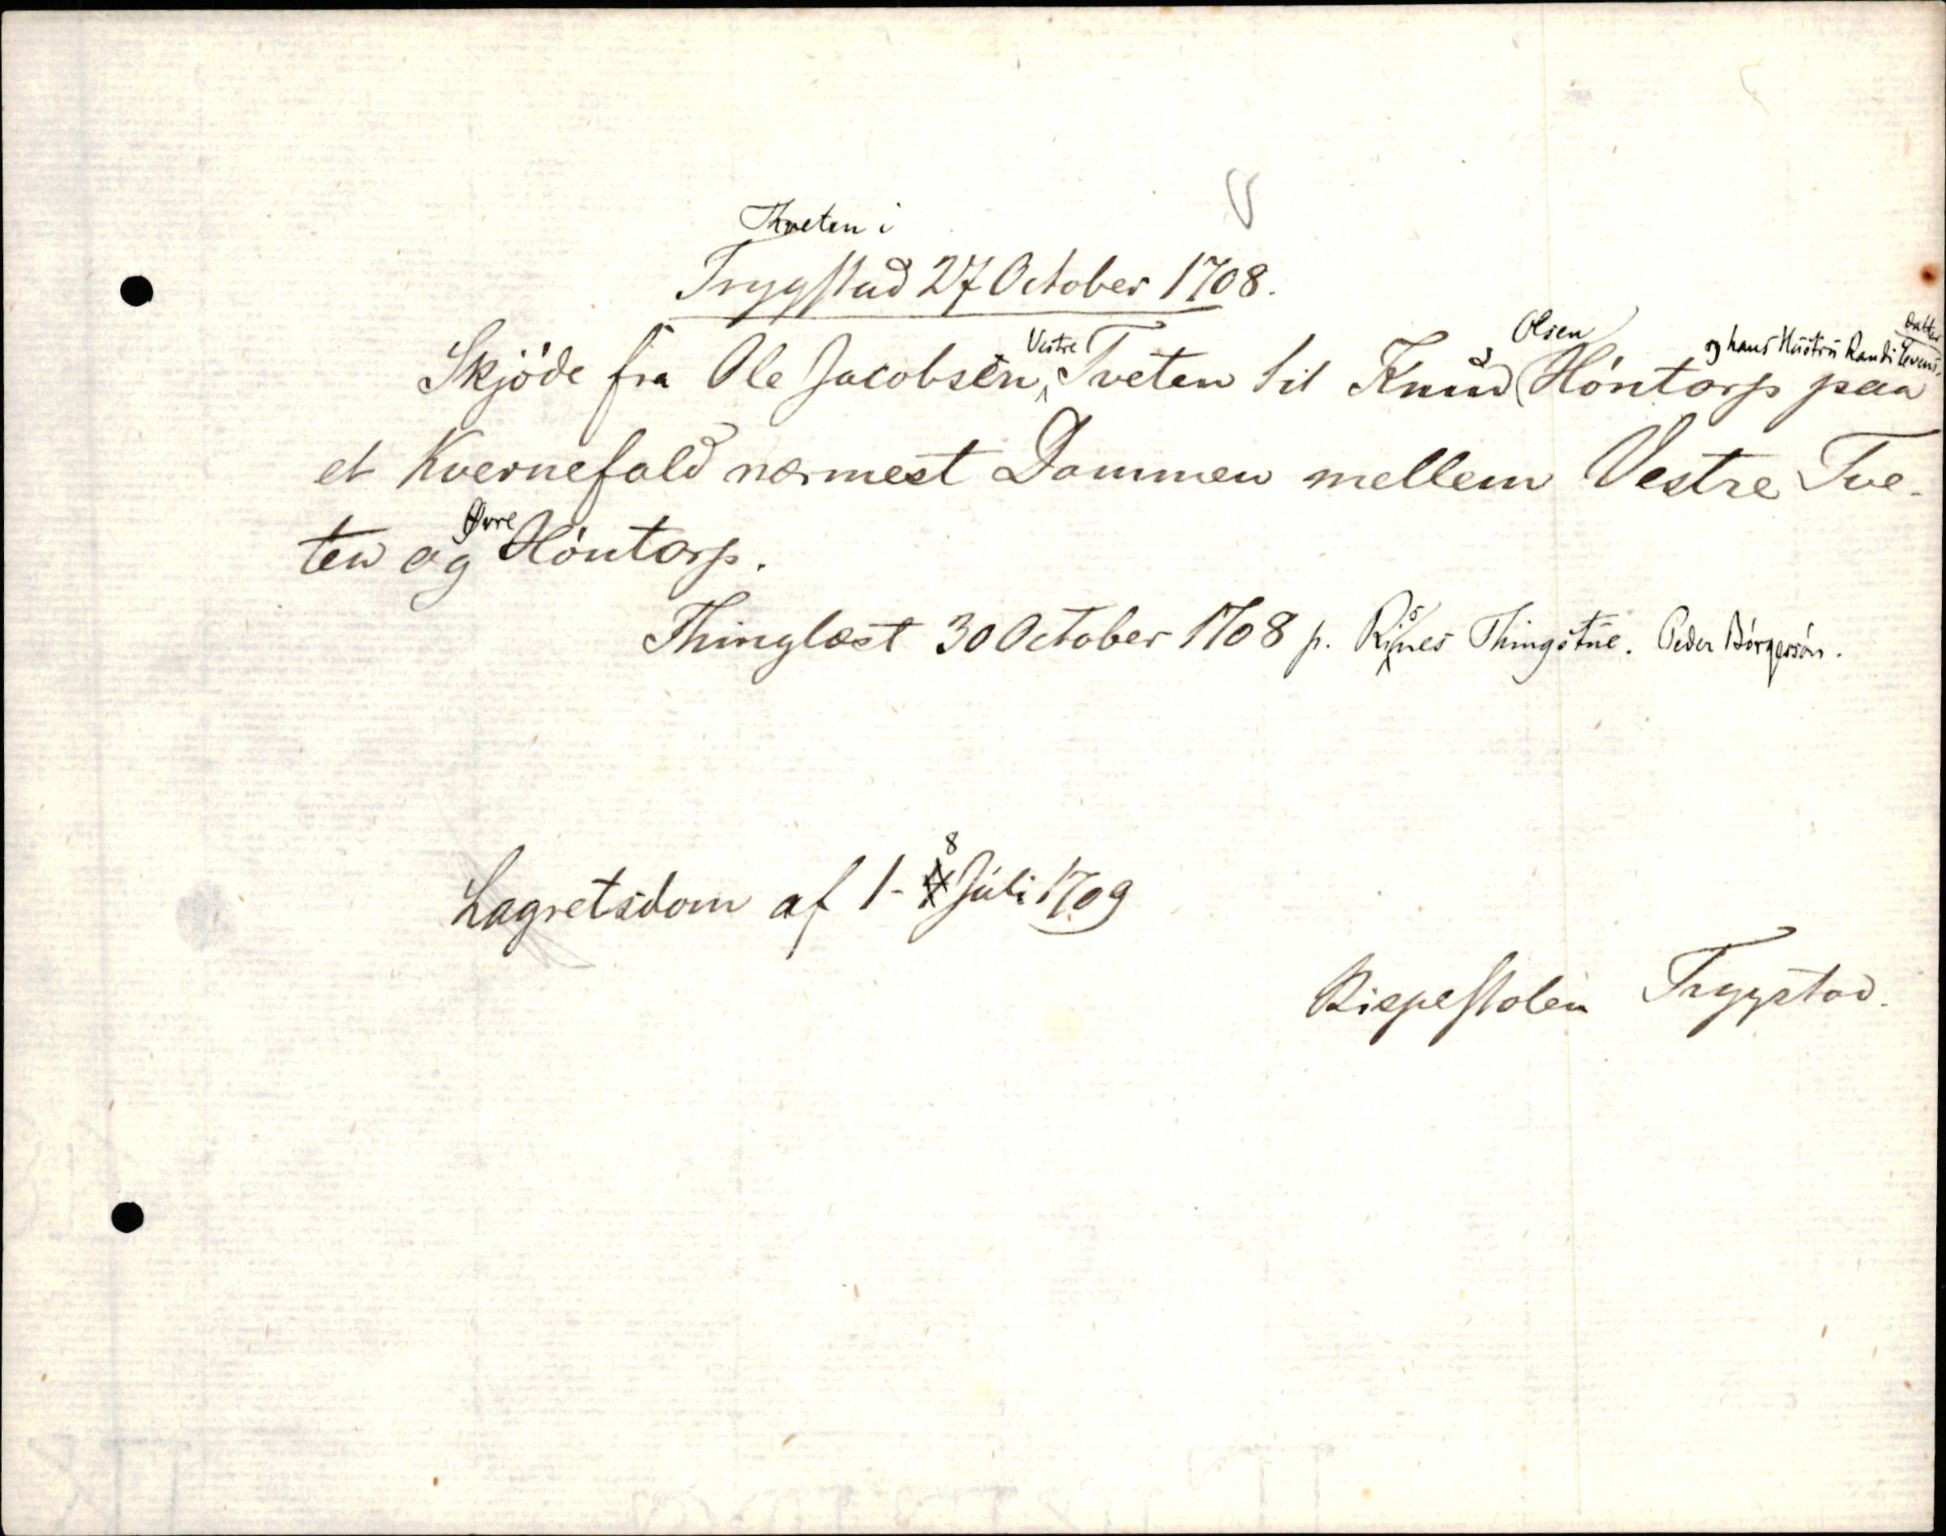 Thveten i
Trygstad 27 October 1708.
Skjöde fra Ole Jacobsen, Vestre Tveten til Knud Olsen Höntorp og hans Hustru Randi Evens datter paa
et Kvernefald nærmest Dammen mellem Vestre Tve-
ten og Øvre Höntorp.
Thinglæst 30 October 1708 p. Risnes Thingstue. Peder Börgersön.
Lagretsdom af 1-8 Juli 1709
Bispestolen Trygstad.